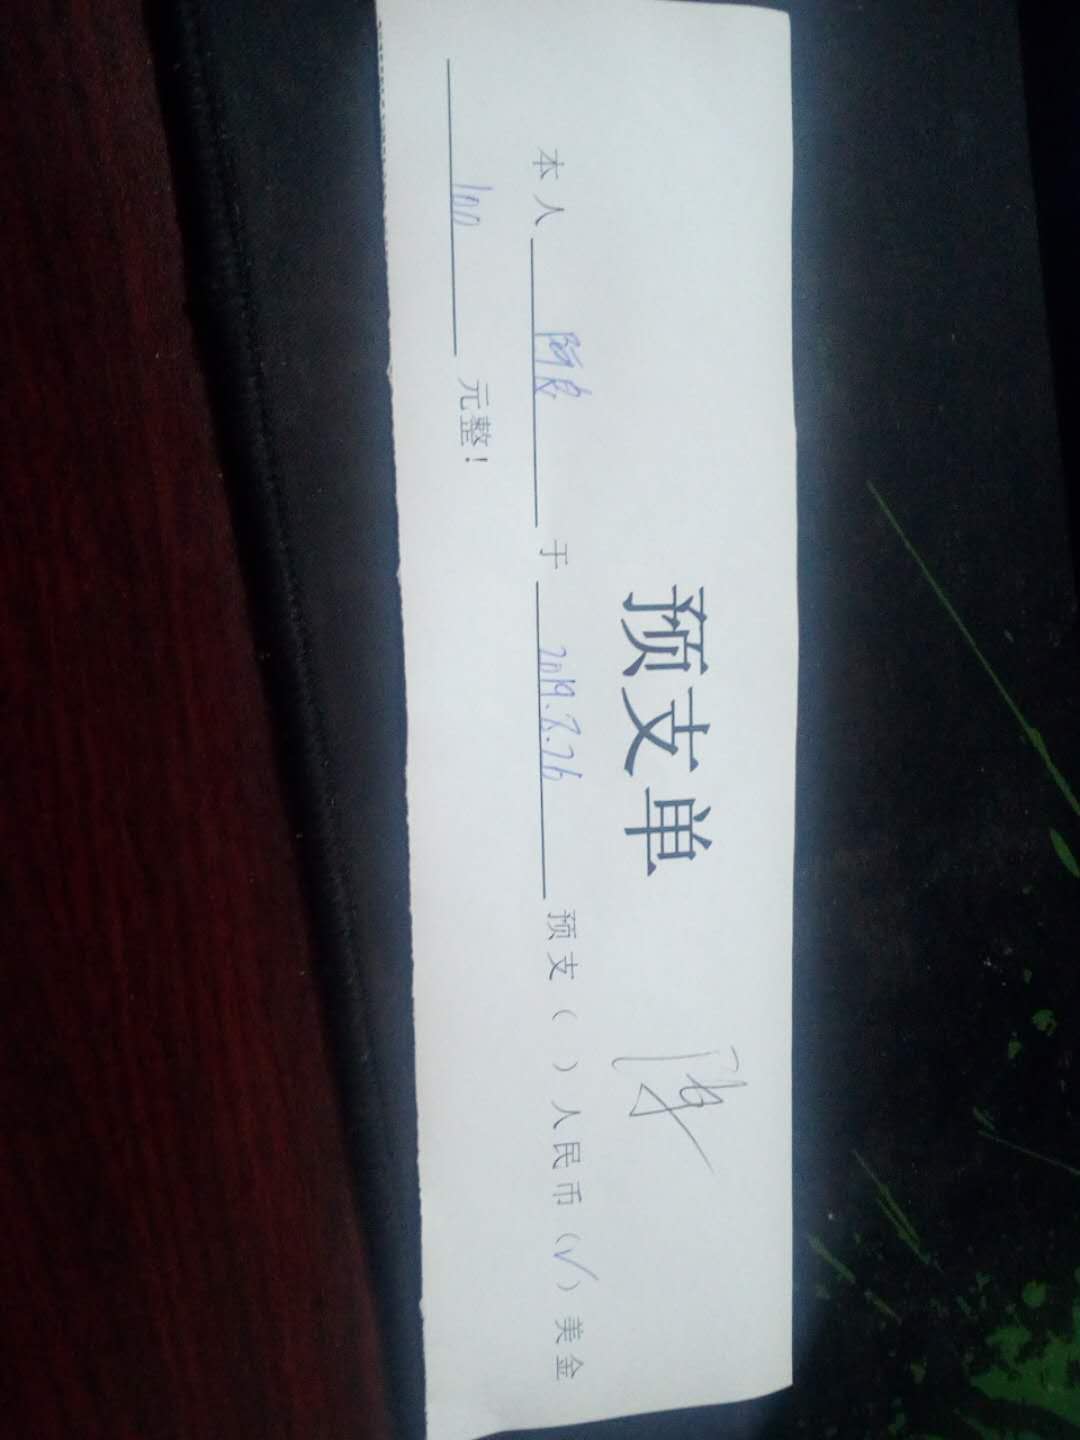 预支单
本人 阿良 于 2019.8.26 预支（ ）人民币（√）美金
100 元整！